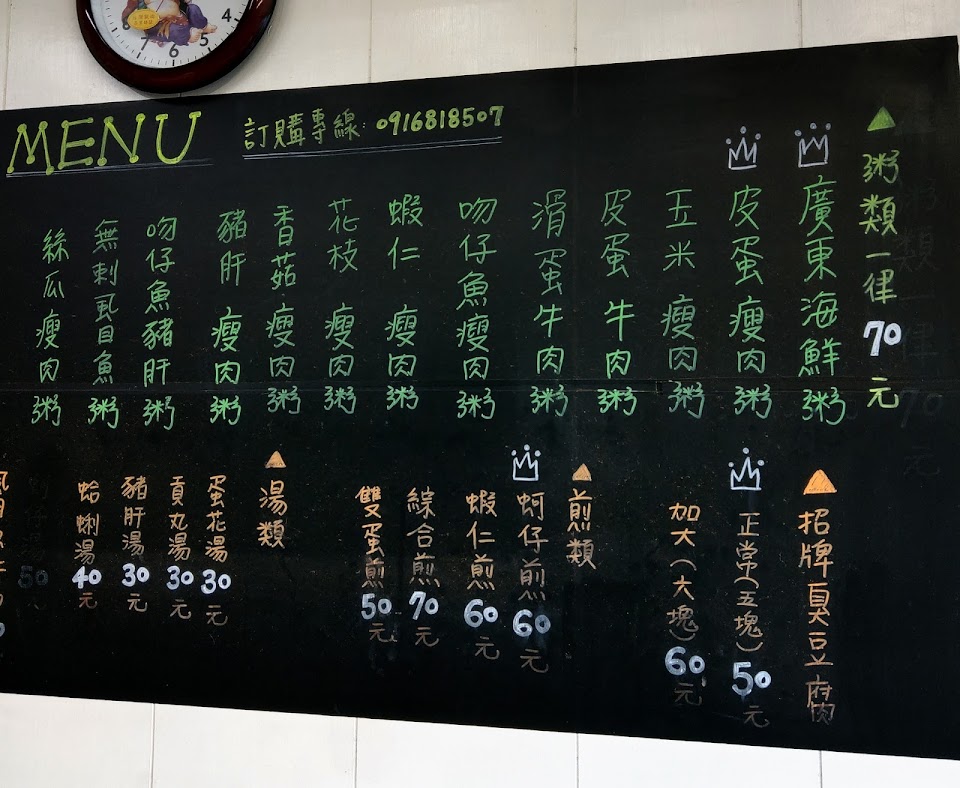 MENU
訂購專線:0916818507
粥類一律70元
廣東海鮮粥
皮蛋瘦肉粥
玉米瘦肉粥
皮蛋牛肉粥
滑蛋牛肉粥
吻仔魚瘦肉粥
蝦仁瘦肉粥
花枝瘦肉粥
香菇瘦肉粥
豬肝瘦肉粥
吻仔魚豬肝粥
無刺虱目魚粥
絲瓜瘦肉粥
招牌臭豆腐
正常(五塊)50元
加大(六塊)60元
煎類
蚵仔煎60元
蝦仁煎60元
綜合煎70元
雙蛋煎50元
湯類
蛋花湯30元
貢丸湯30元
豬肝湯30元
蛤蜊湯40元
50
4
5
6
7
8